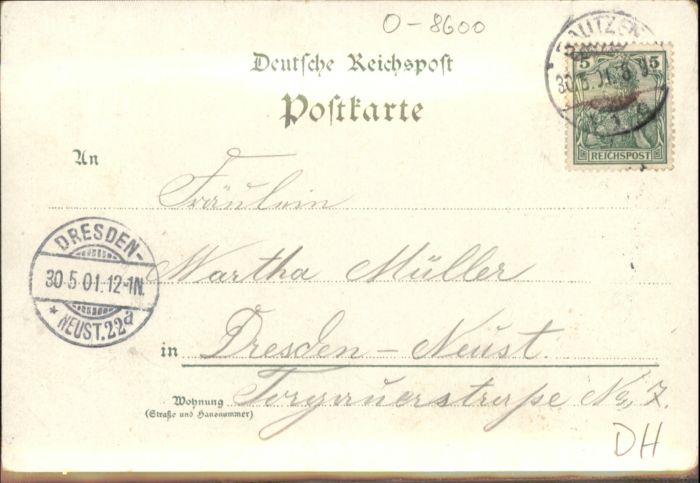 O-8600
BAUTZEN
30.5.01.8-9V
1 c
5 5
REICHSPOST
Deutsche Reichspost
Postkarte
An
Fräulein
DRESDEN-
30.5.01.12-1N.
* NEUST.22a
Martha Müller
in Dresden-Neust.
Wohnung Torgauerstraße No. 7.
(Straße und Hausnummer)
DH